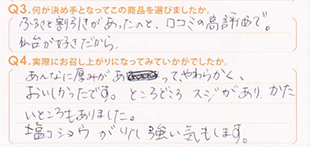 Q3.何が決め手となってこの商品を選びましたか。
ふるさと割引きがあったのと、口コミの高評価で。
仙台が好きだから
Q4.実際にお召し上がりになってみていかがでしたか。
あんなに厚みがあってやわらかく、
おいしかったです。ところどころ スジがあり、かた
いところもありました。
塩コショウが 強い気もします。